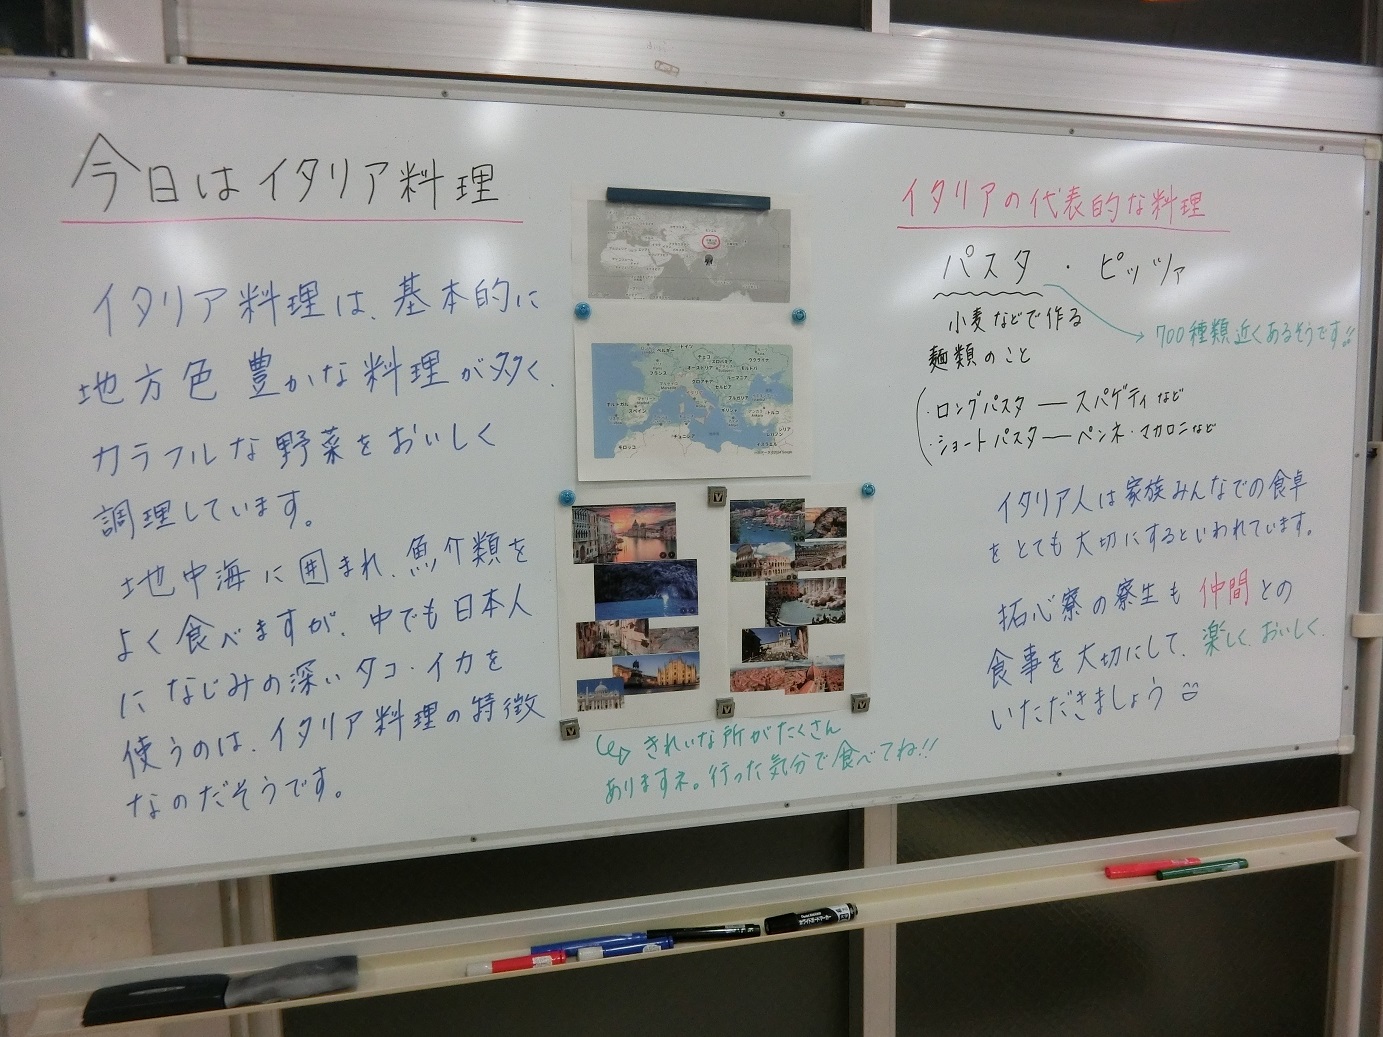 今日はイタリア料理
イタリア料理は、基本的に
地方色豊かな料理が多く、
カラフルな野菜をおいしく
調理しています。
地中海に囲まれ、魚介類を
よく食べますが、中でも日本人
になじみの深いタコ・イカを
使うのは、イタリア料理の特徴
なのだそうです。
きれいな所がたくさん
ありますネ。行った気分で食べてね!!
イタリアの代表的な料理
パスタ・ピッツァ
小麦などで作る
麺類のこと
→700種類近くあるそうです!!
・ロングパスタ ― スパゲティなど
・ショートパスタ ― ペンネ・マカロニなど
イタリア人は家族みんなでの食卓
をとても大切にするといわれています。
拓心寮の寮生も仲間との
食事を大切にして、楽しく、おいしく、
いただきましょう